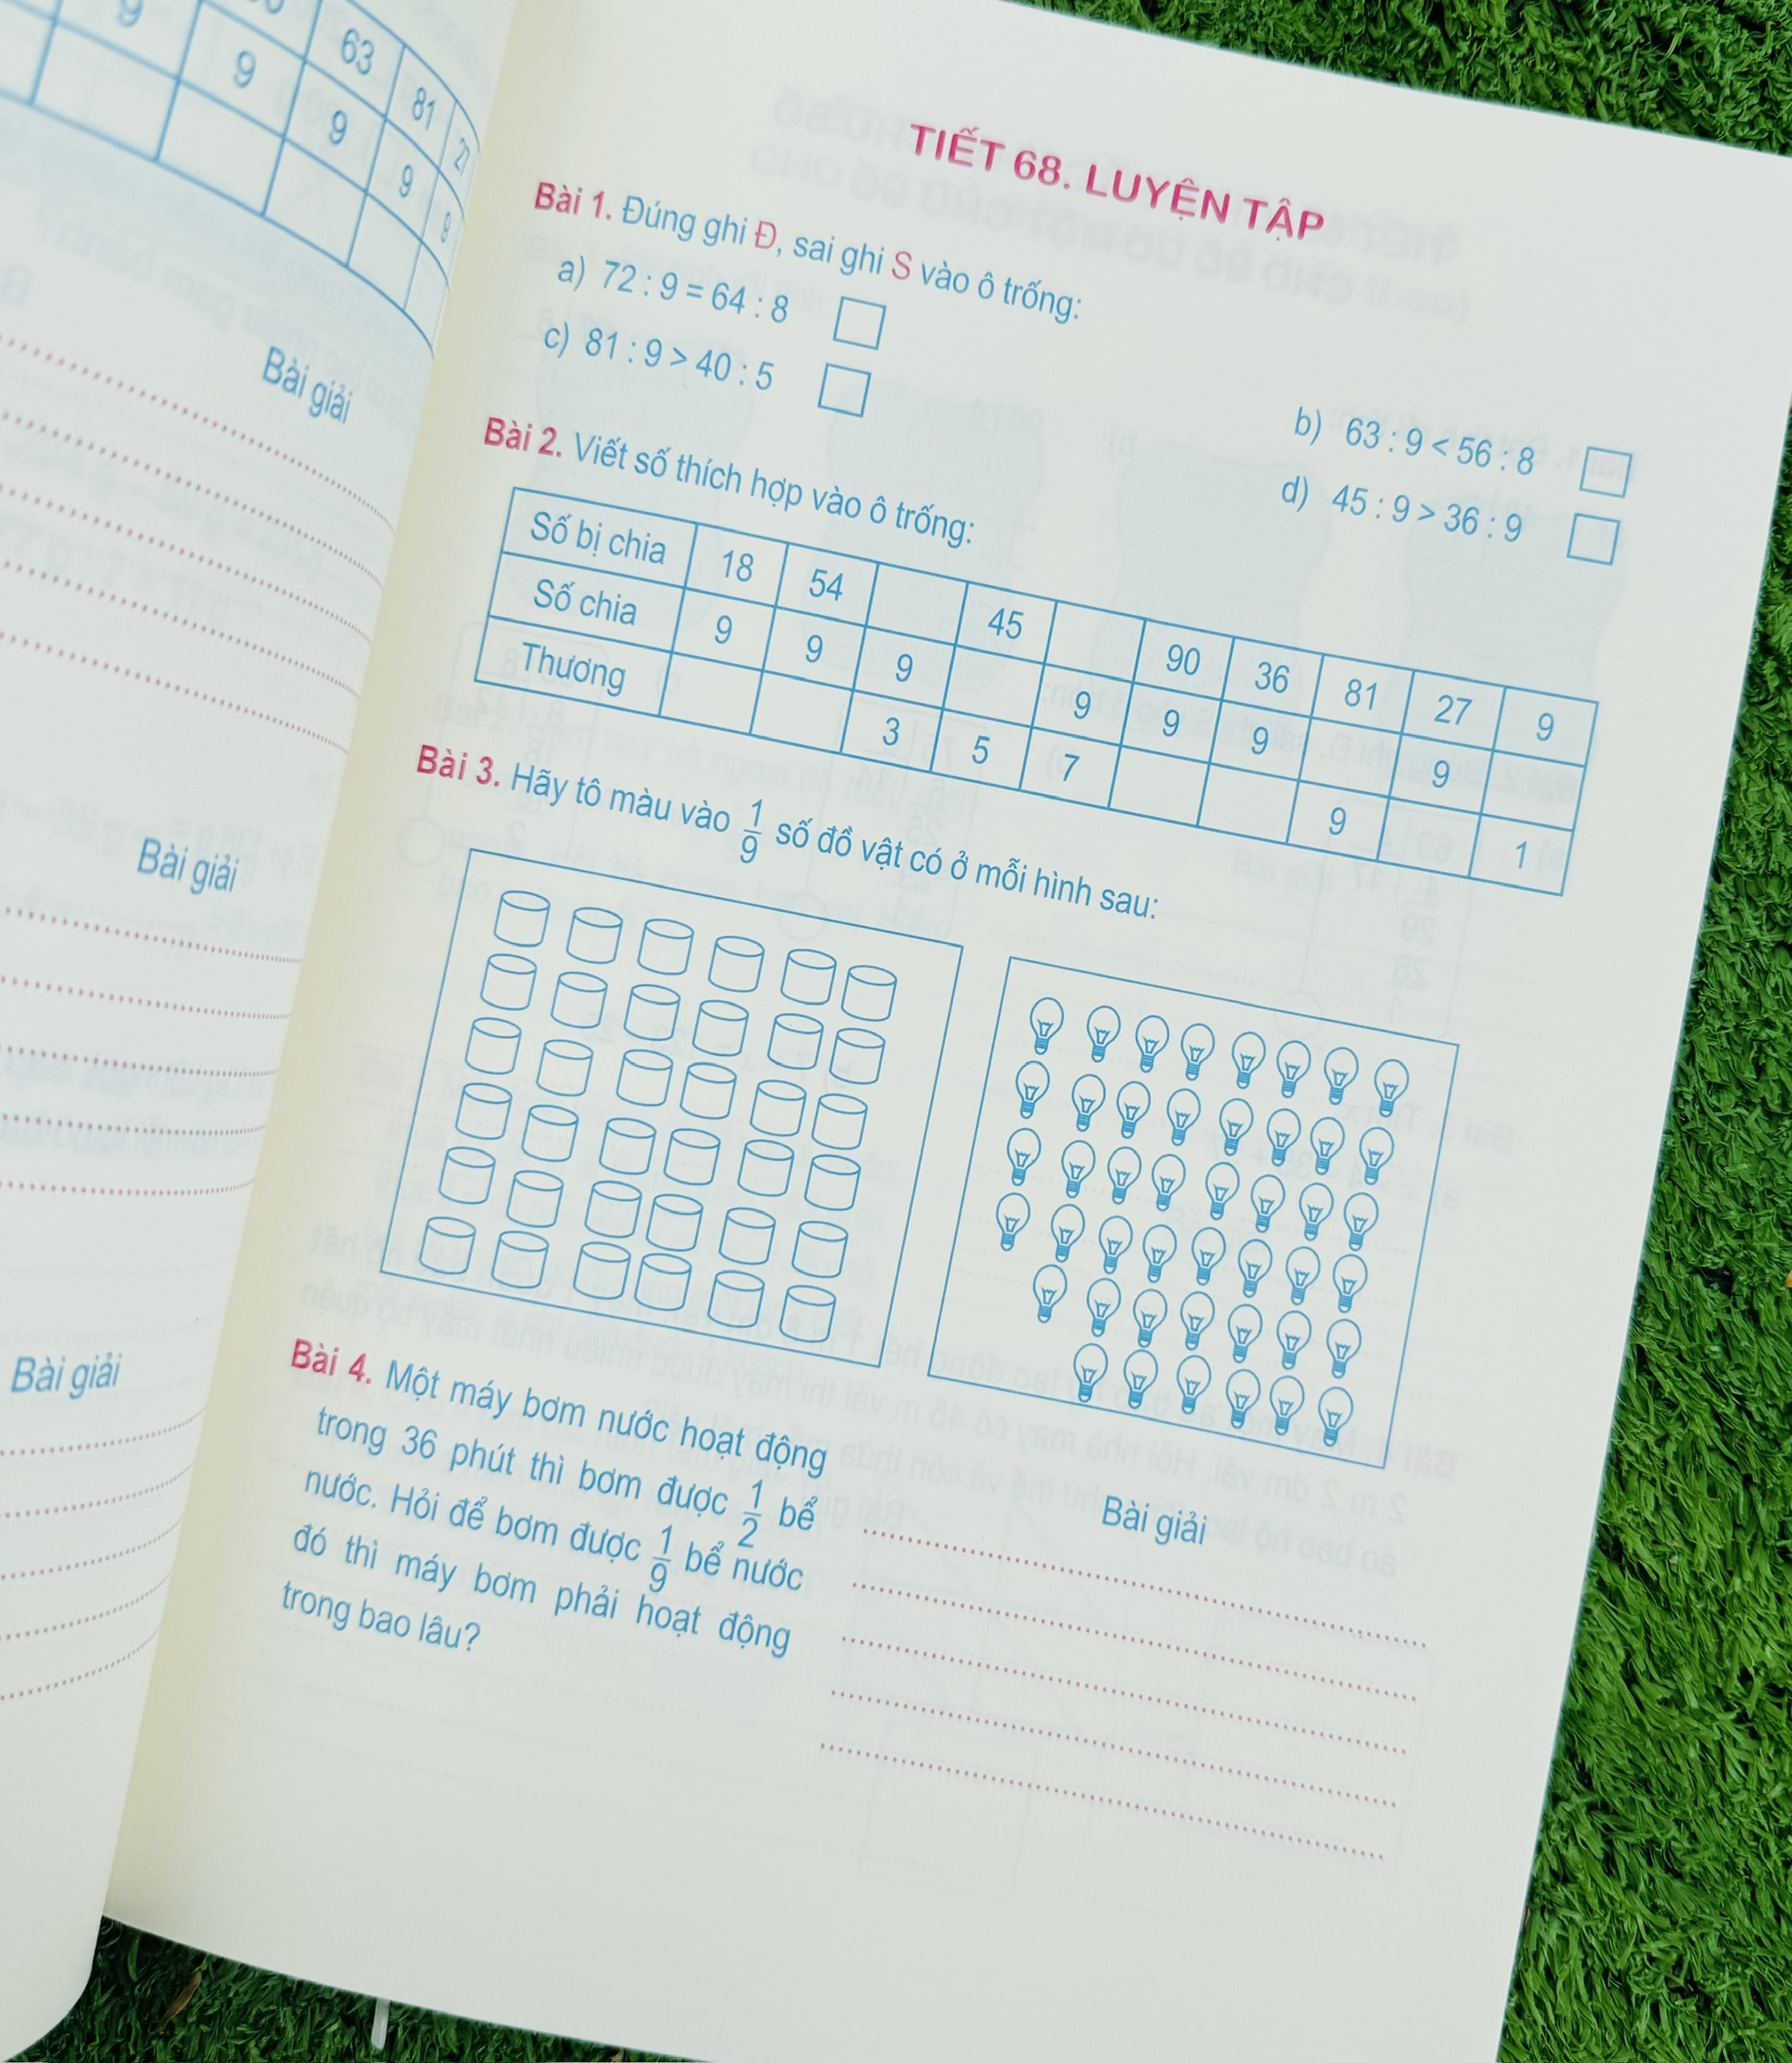 9
63
81
27
9
9
9
9
Bài giải
Bài giải
Bài giải
TIẾT 68. LUYỆN TẬP
Bài 1. Đúng ghi Đ, sai ghi S vào ô trống:
a) 72 : 9 = 64 : 8
b) 63 : 9 < 56 : 8
c) 81 : 9 > 40 : 5
d) 45 : 9 > 36 : 9
Bài 2. Viết số thích hợp vào ô trống:
Số bị chia 18 54 45 90 36 81 27 9
Số chia 9 9 9 9 9 9 9
Thương 3 5 7 9 1
Bài 3. Hãy tô màu vào 1/9 số đồ vật có ở mỗi hình sau:
Bài 4. Một máy bơm nước hoạt động
trong 36 phút thì bơm được 1/2 bể
nước. Hỏi để bơm được 1/9 bể nước
đó thì máy bơm phải hoạt động
trong bao lâu?
Bài giải